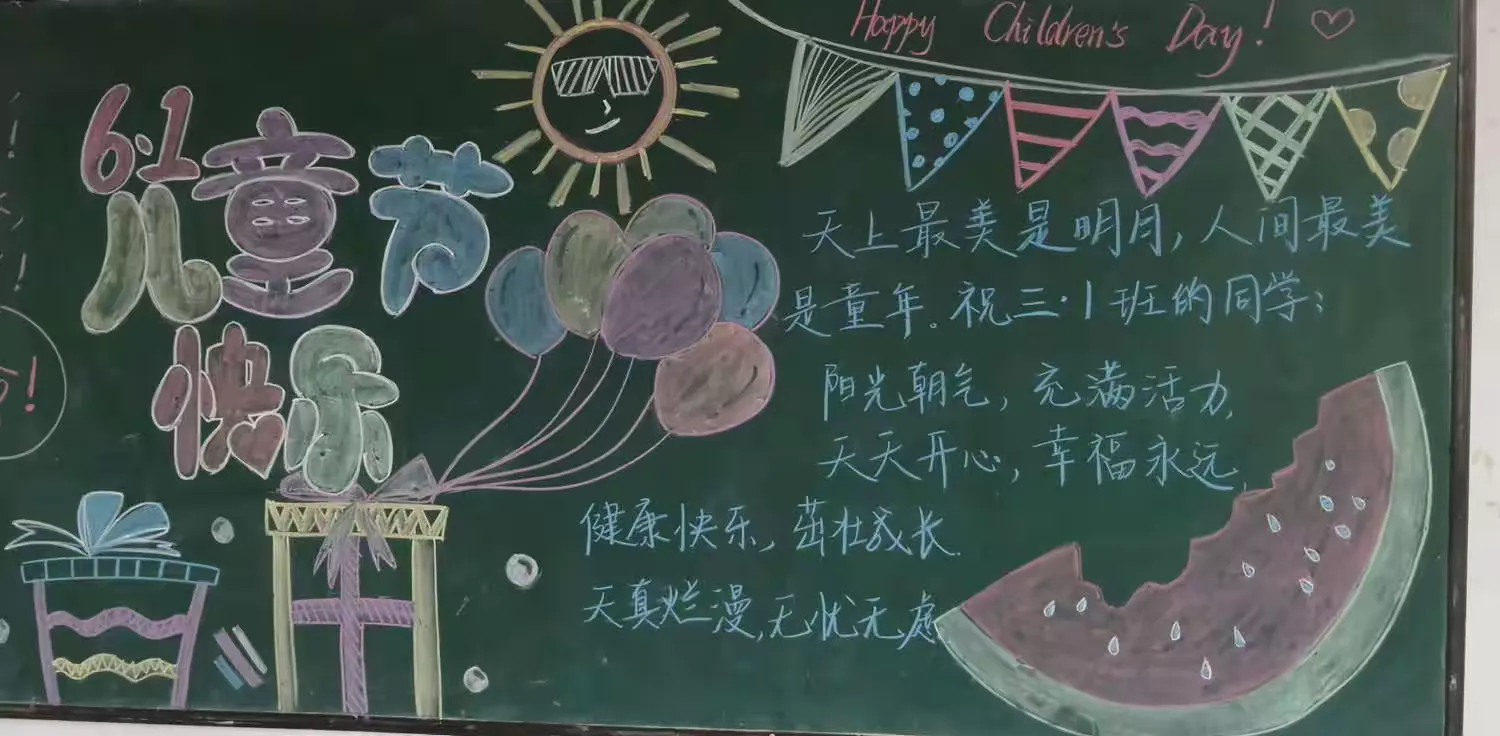 Happy Children's Day!
6·1
儿童节
快乐
天上最美是明月，人间最美
是童年。祝三·1班的同学：
阳光朝气，充满活力，
天天开心，幸福永远，
健康快乐，茁壮成长．
天真烂漫，无忧无虑